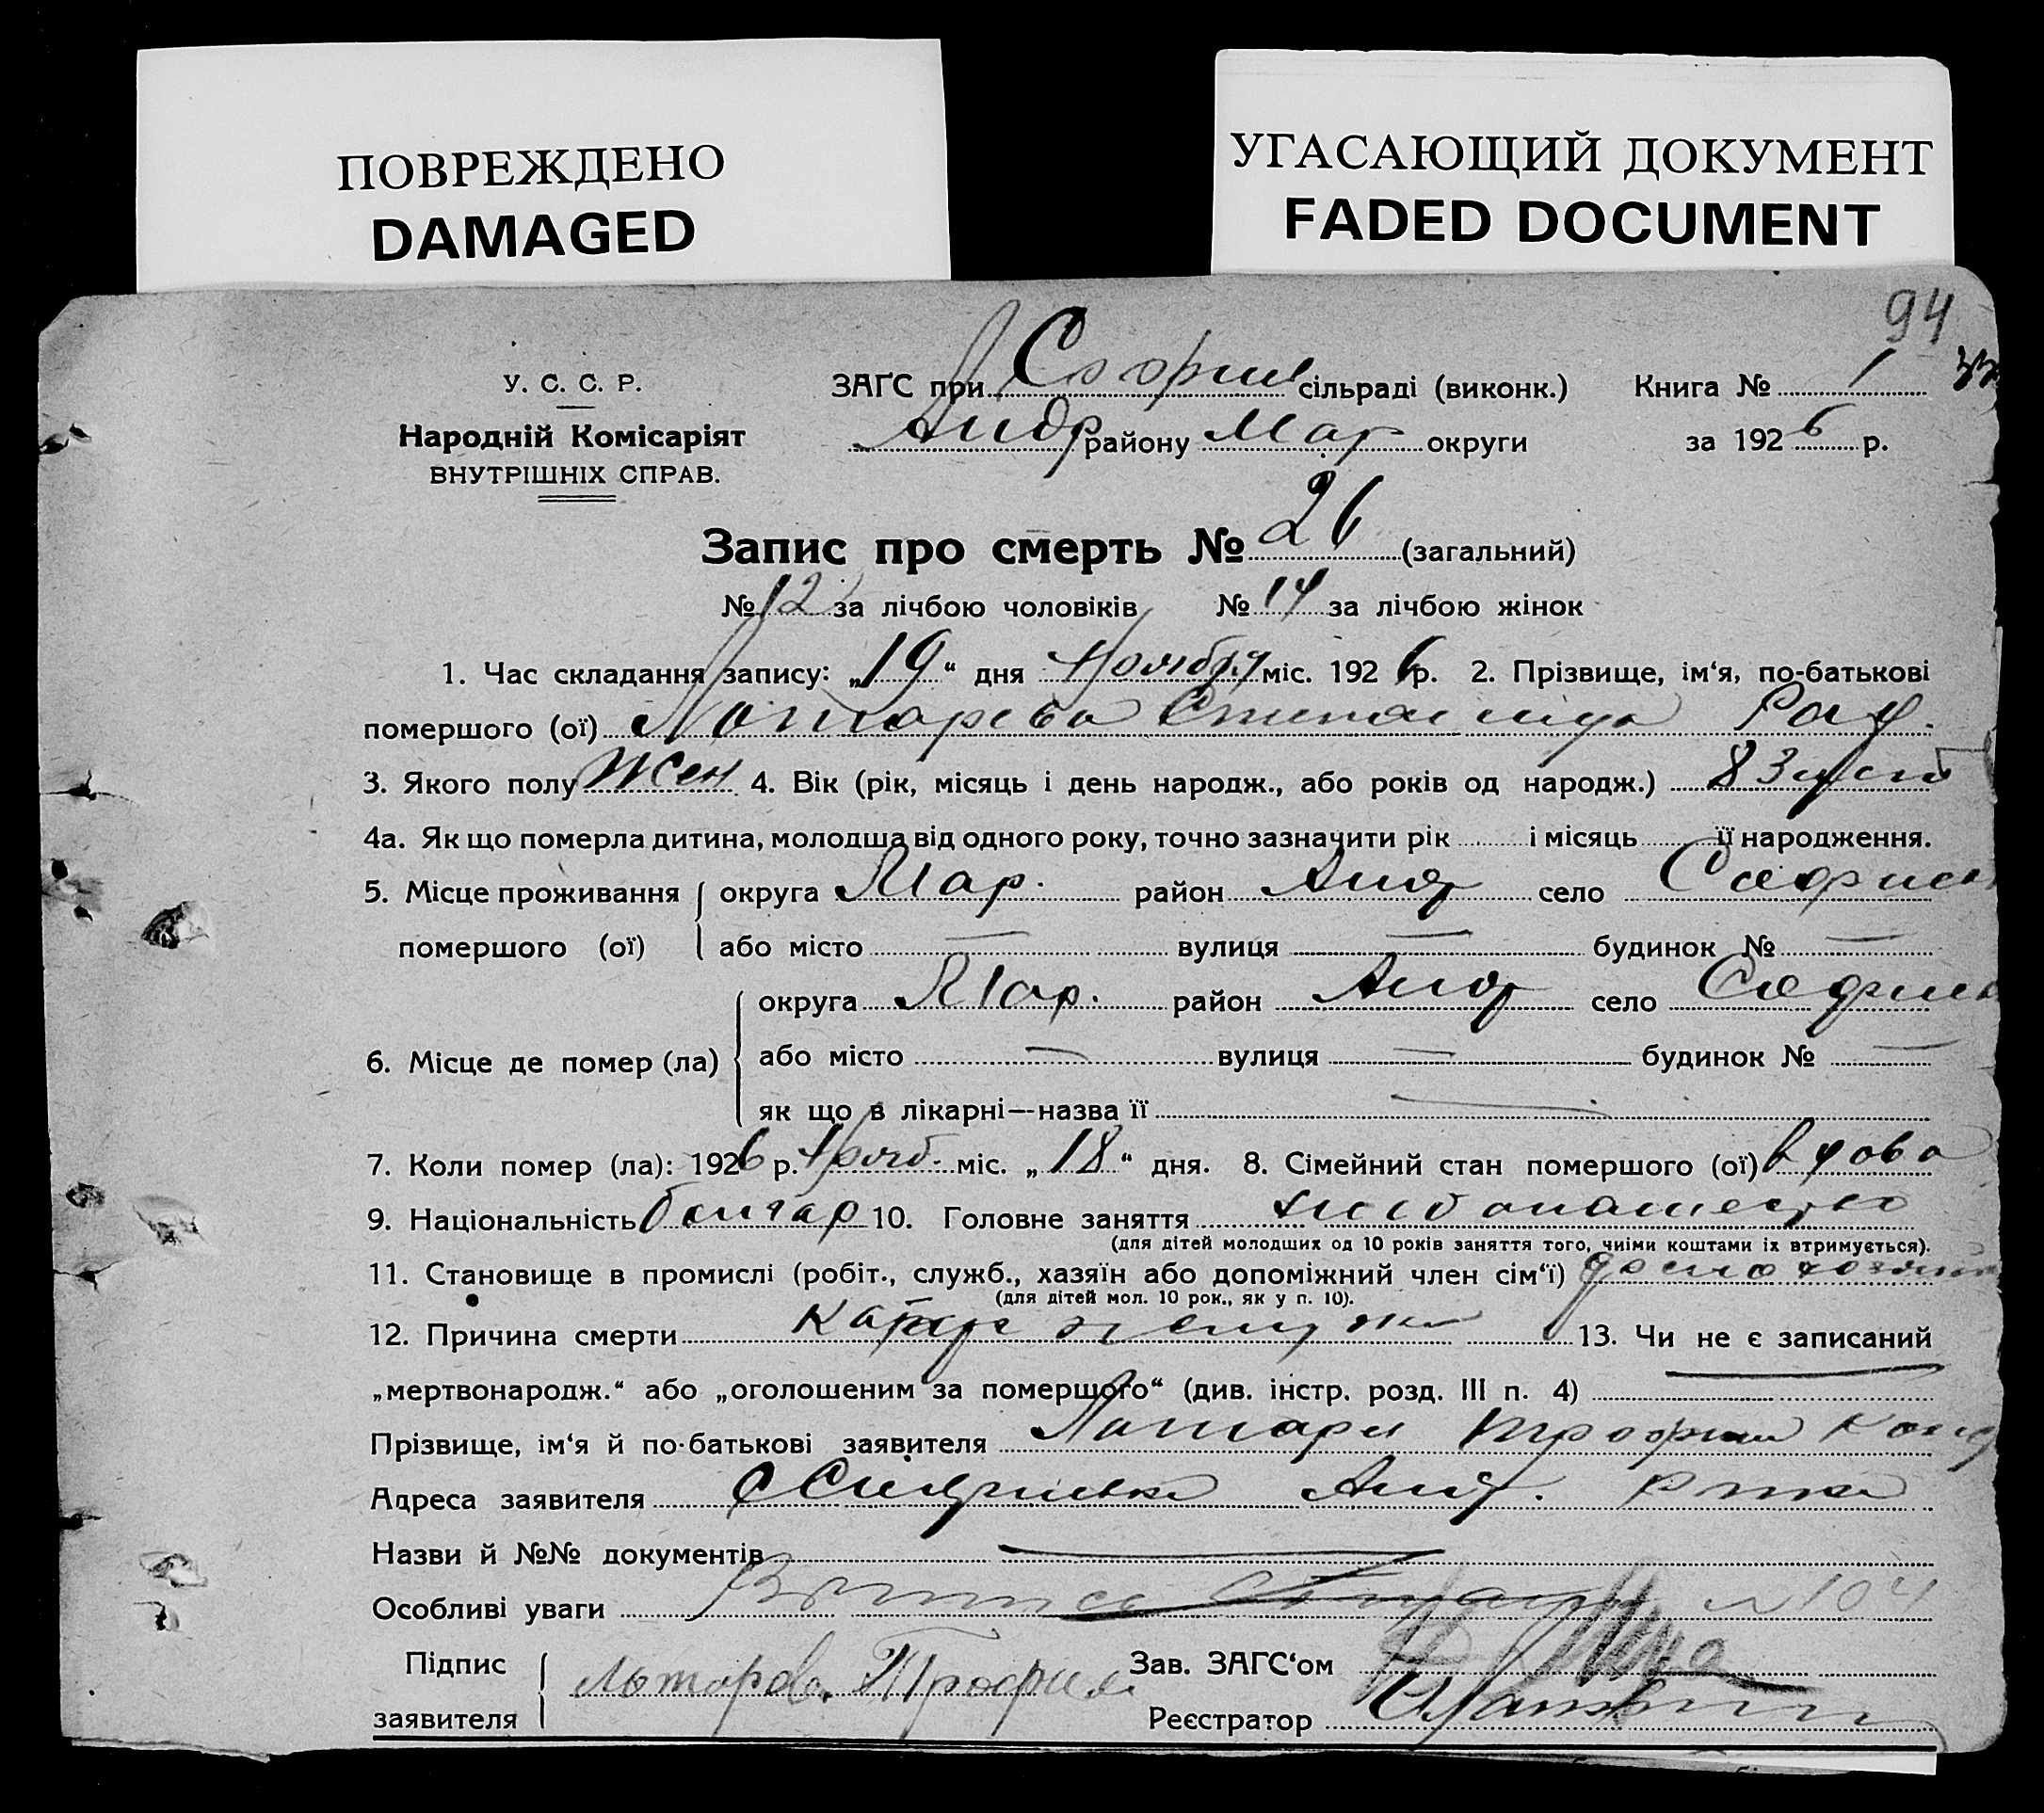 ПОВРЕЖДЕНО
DAMAGED
УГАСАЮЩИЙ ДОКУМЕНТ
FADED DOCUMENT
94
У. С. С. Р.
Народній Комісаріят
ВНУТРІШНІХ СПРАВ.
ЗАҐС при Софиев сільраді (виконк.) Книга № 1
Андр району Мар округи за 1926 р.
Запис про смерть № 26 (загальний)
№ 12 за лічбою чоловіків № 14 за лічбою жінок
1. Час складання запису: „19“ дня Ноября міс. 1926 р. 2. Прізвище, ім‘я, по-батькові
помершого (ої)
3. Якого полу жен 4. Вік (рік, місяць і день народж., або років од народж.) 83 лет
4а. Як що померла дитина, молодша від одного року, точно зазначити рік і місяць її народження.
5. Місце проживання помершого (ої) округа Мар. район Андр село
або місто — вулиця — будинок № —
6. Місце де помер (ла) округа Мар. район Андр село
або місто — вулиця — будинок № —
як що в лікарні—назва її —
7. Коли помер (ла): 1926 р. Нояб. міс. „18“ дня. 8. Сімейний стан помершого (ої) вдова
9. Національність болгар 10. Головне заняття хлебопашество
(для дітей молодших од 10 років заняття того, чиїми коштами їх втримується).
11. Становище в промислі (робіт., служб., хазяїн або допоміжний член сім‘ї)
(для дітей мол. 10 рок., як у п. 10).
12. Причина смерти катар желудка 13. Чи не є записаний
„мертвонародж.“ або „оголошеним за помершого“ (див. інстр. розд. III п. 4) —
Прізвище, ім‘я й по-батькові заявителя Трофим
Адреса заявителя с Андр. рна
Назви й №№ документів —
Особливі уваги № 104
Підпис заявителя Трофим
Зав. ЗАҐС‘ом
Реєстратор